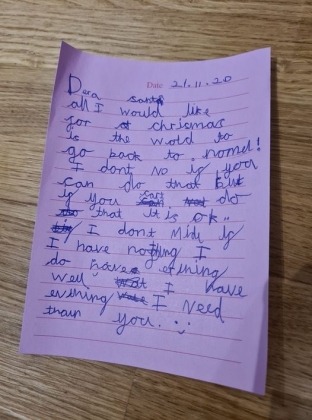 Date 21.11.20
Dera santa
all I would like
for chrismas
is the wold to
go back to nomel!
I dont no if you
can do that but
if you cant do
that it is ok..
I dont Mide if
I have nothing I
do have efining
well I have
evthing I need
thain you...